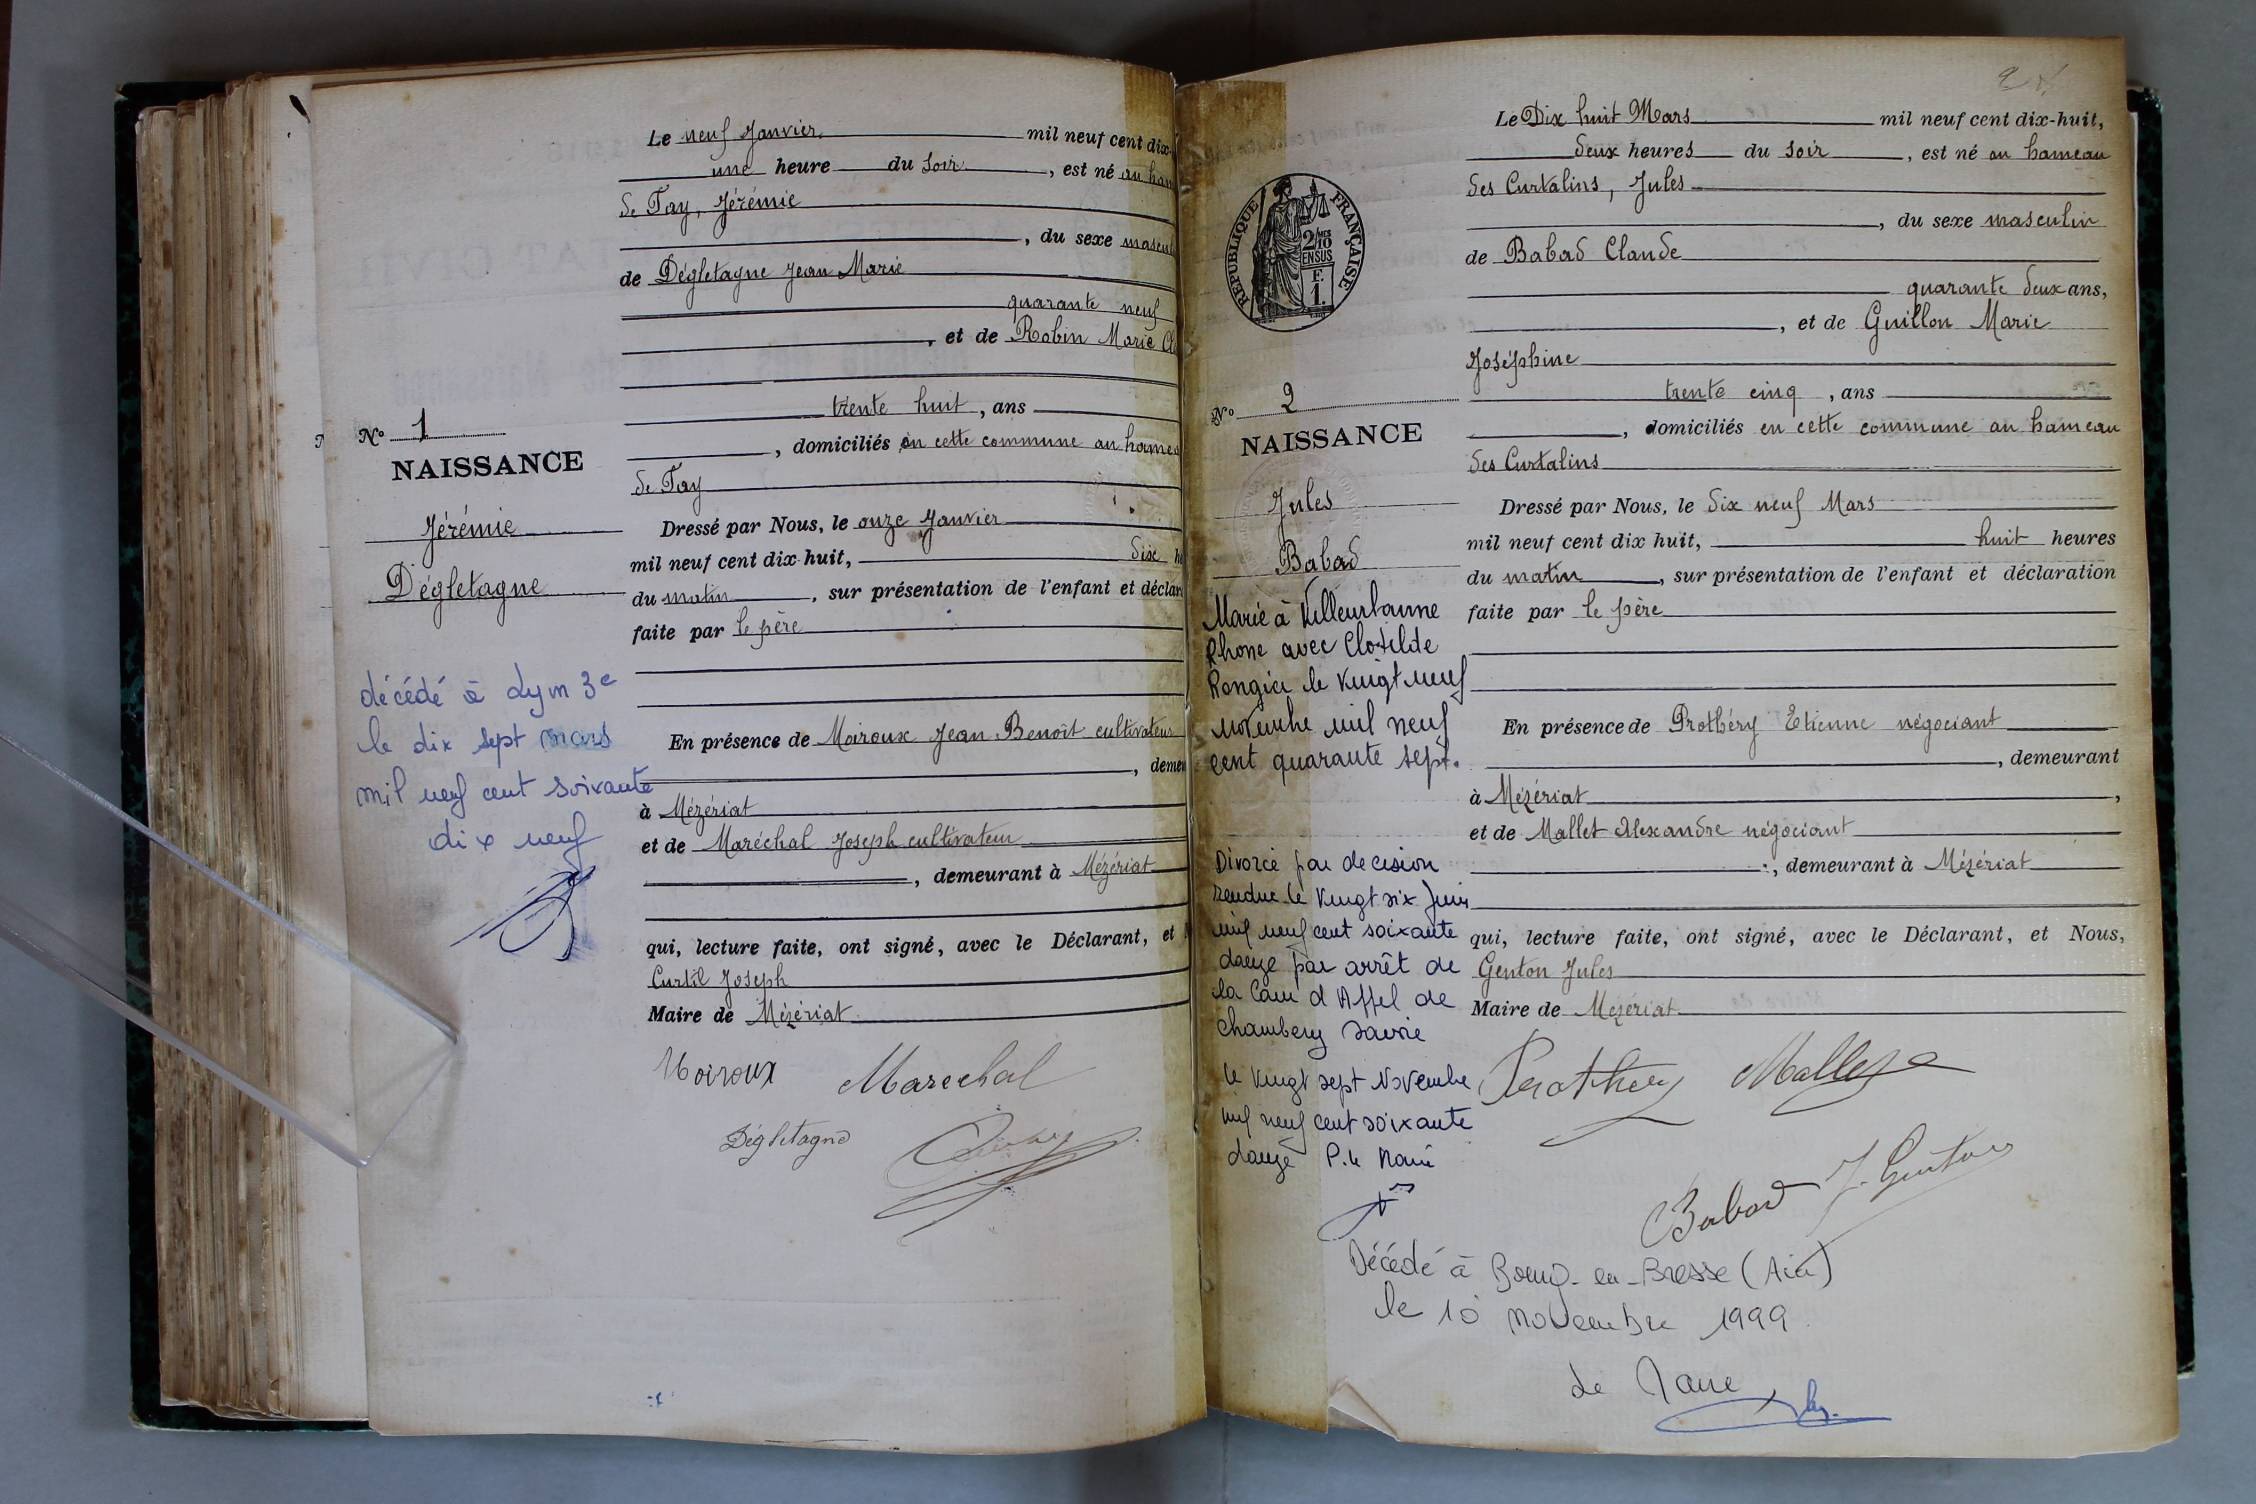 Le neuf Janvier mil neuf cent dix-
une heure du soir, est né au ham
de Tay, Jérémie
, du sexe mascul
de Dégletagne Jean Marie
quarante neuf
, et de Robin Marie Cl
trente huit, ans
, domiciliés en cette commune au hamea
de Tay
Nº 1
NAISSANCE
Jérémie
Dégletagne
Dressé par Nous, le onze Janvier
mil neuf cent dix-huit, dix h
du matin, sur présentation de l'enfant et déclar
faite par le père
décédé à Lyon 3e
le dix sept mars
mil neuf cent soixante
dix neuf
En présence de Moiroux Jean Benoît cultivateur
, demeu
à Mézériat
et de Maréchal Joseph cultivateur
, demeurant à Mézériat
qui, lecture faite, ont signé, avec le Déclarant, et N
Curtil Joseph
Maire de Mézériat
Moiroux Marechal
Dégletagne
Le Dix huit Mars mil neuf cent dix-huit,
deux heures du soir, est né au hameau
des Curtalins, Jules
, du sexe masculin
de Babad Claude
quarante deux ans,
, et de Guillon Marie
Joséphine
trente cinq, ans
, domiciliés en cette commune au hameau
des Curtalins
RÉPUBLIQUE FRANÇAISE
2/10
MES
EN SUS
F.
1.
Nº 2
NAISSANCE
Jules
Babad
Dressé par Nous, le dix neuf Mars
mil neuf cent dix huit, huit heures
du matin, sur présentation de l'enfant et déclaration
faite par le père
Marié à Villeurbanne
Rhone avec Clotilde
Rongier le vingt neuf
novembre mil neuf
cent quarante sept.
En présence de Prothéry Etienne négociant
, demeurant
à Mézériat,
et de Mallet Alexandre négociant
, demeurant à Mézériat
qui, lecture faite, ont signé, avec le Déclarant, et Nous,
Genton Jules
Maire de Mézériat
Divorcé par decision
rendue le vingt six Juin
mil neuf cent soixante
douze par arrêt de
la Cour d'Appel de
Chambery Savoie
le vingt sept Novembre
mil neuf cent soixante
douze P. le Maire
Prothery Mallet
Babad J. Genton
Décédé à Bourg-en-Bresse (Ain)
le 10 novembre 1999
Le Maire